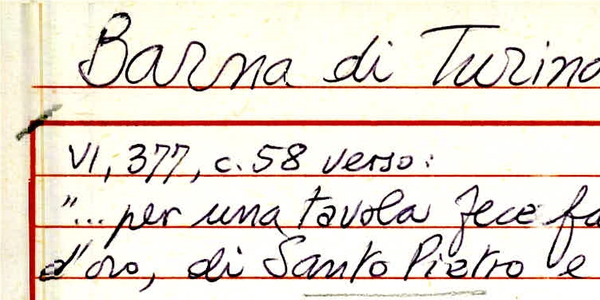 Barna di Turino
VI, 377, c. 58 verso:
"... per una tavola fece fa
d'oro, di Santo Pietro e